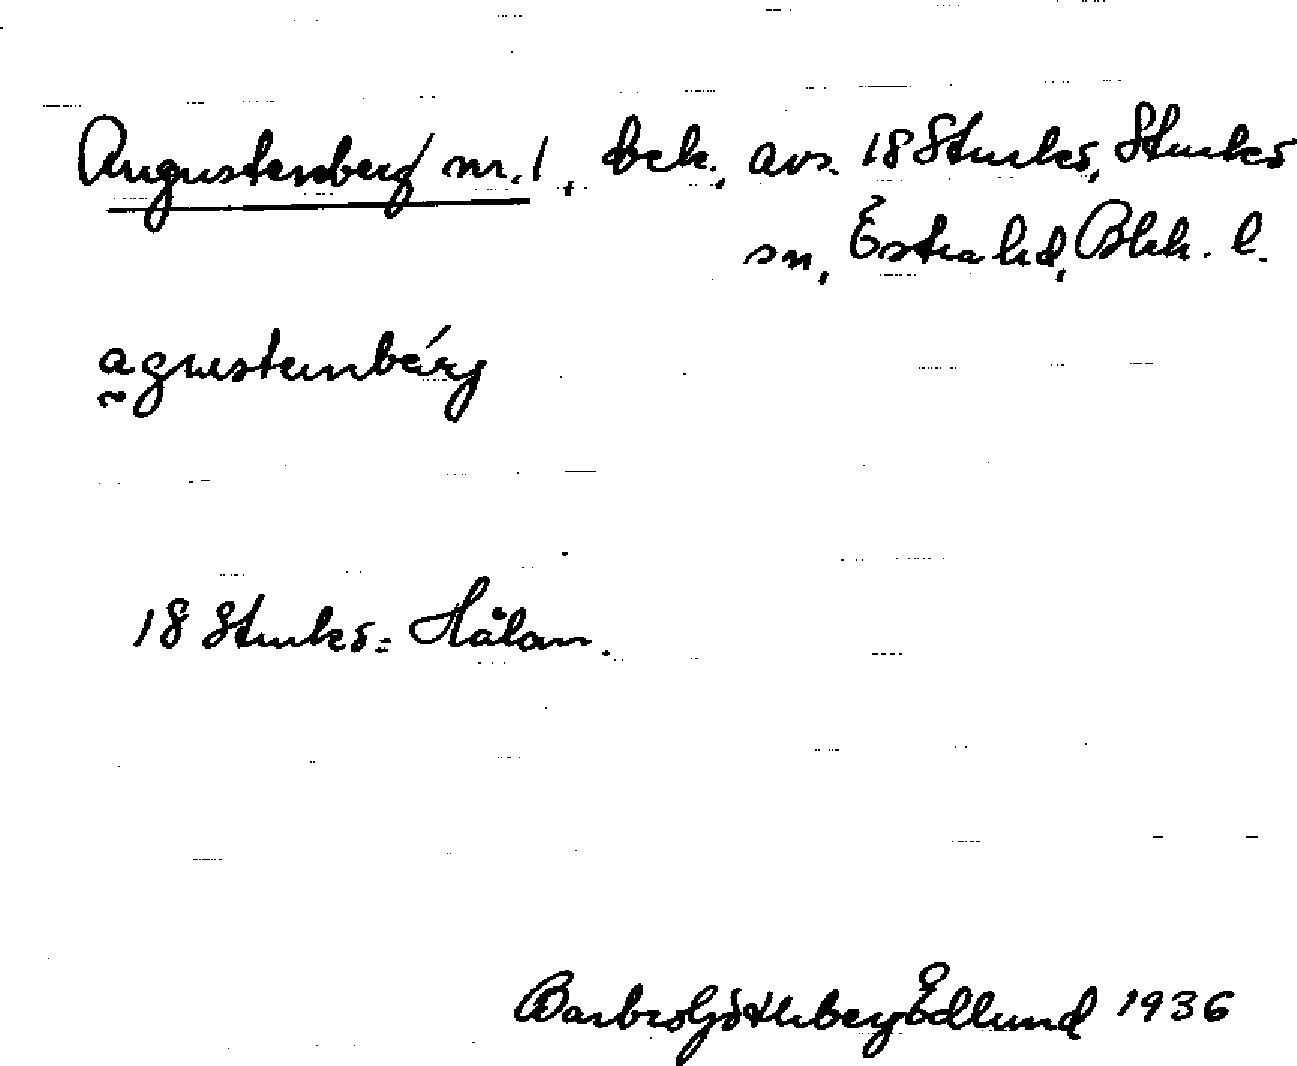 Augustenberg nr. 1, bek., avs. 18 Sturks, Sturks
sn, Östra hd, Blek. l.
agustenbérj
18 Sturks = Hålan.
Barbro Götherberg Edlund 1936